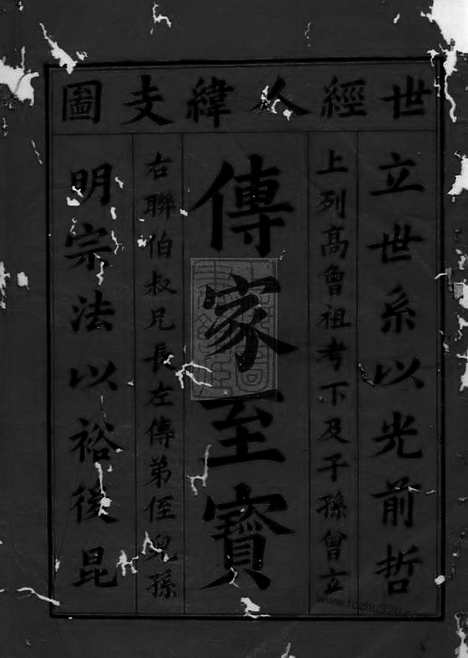 世經人緯支圖
立世系以光前哲
上列高曾祖考下及子孫曾立
傳家至寶
右聯伯叔兄長左傳弟侄兒孫
明宗法以裕後昆